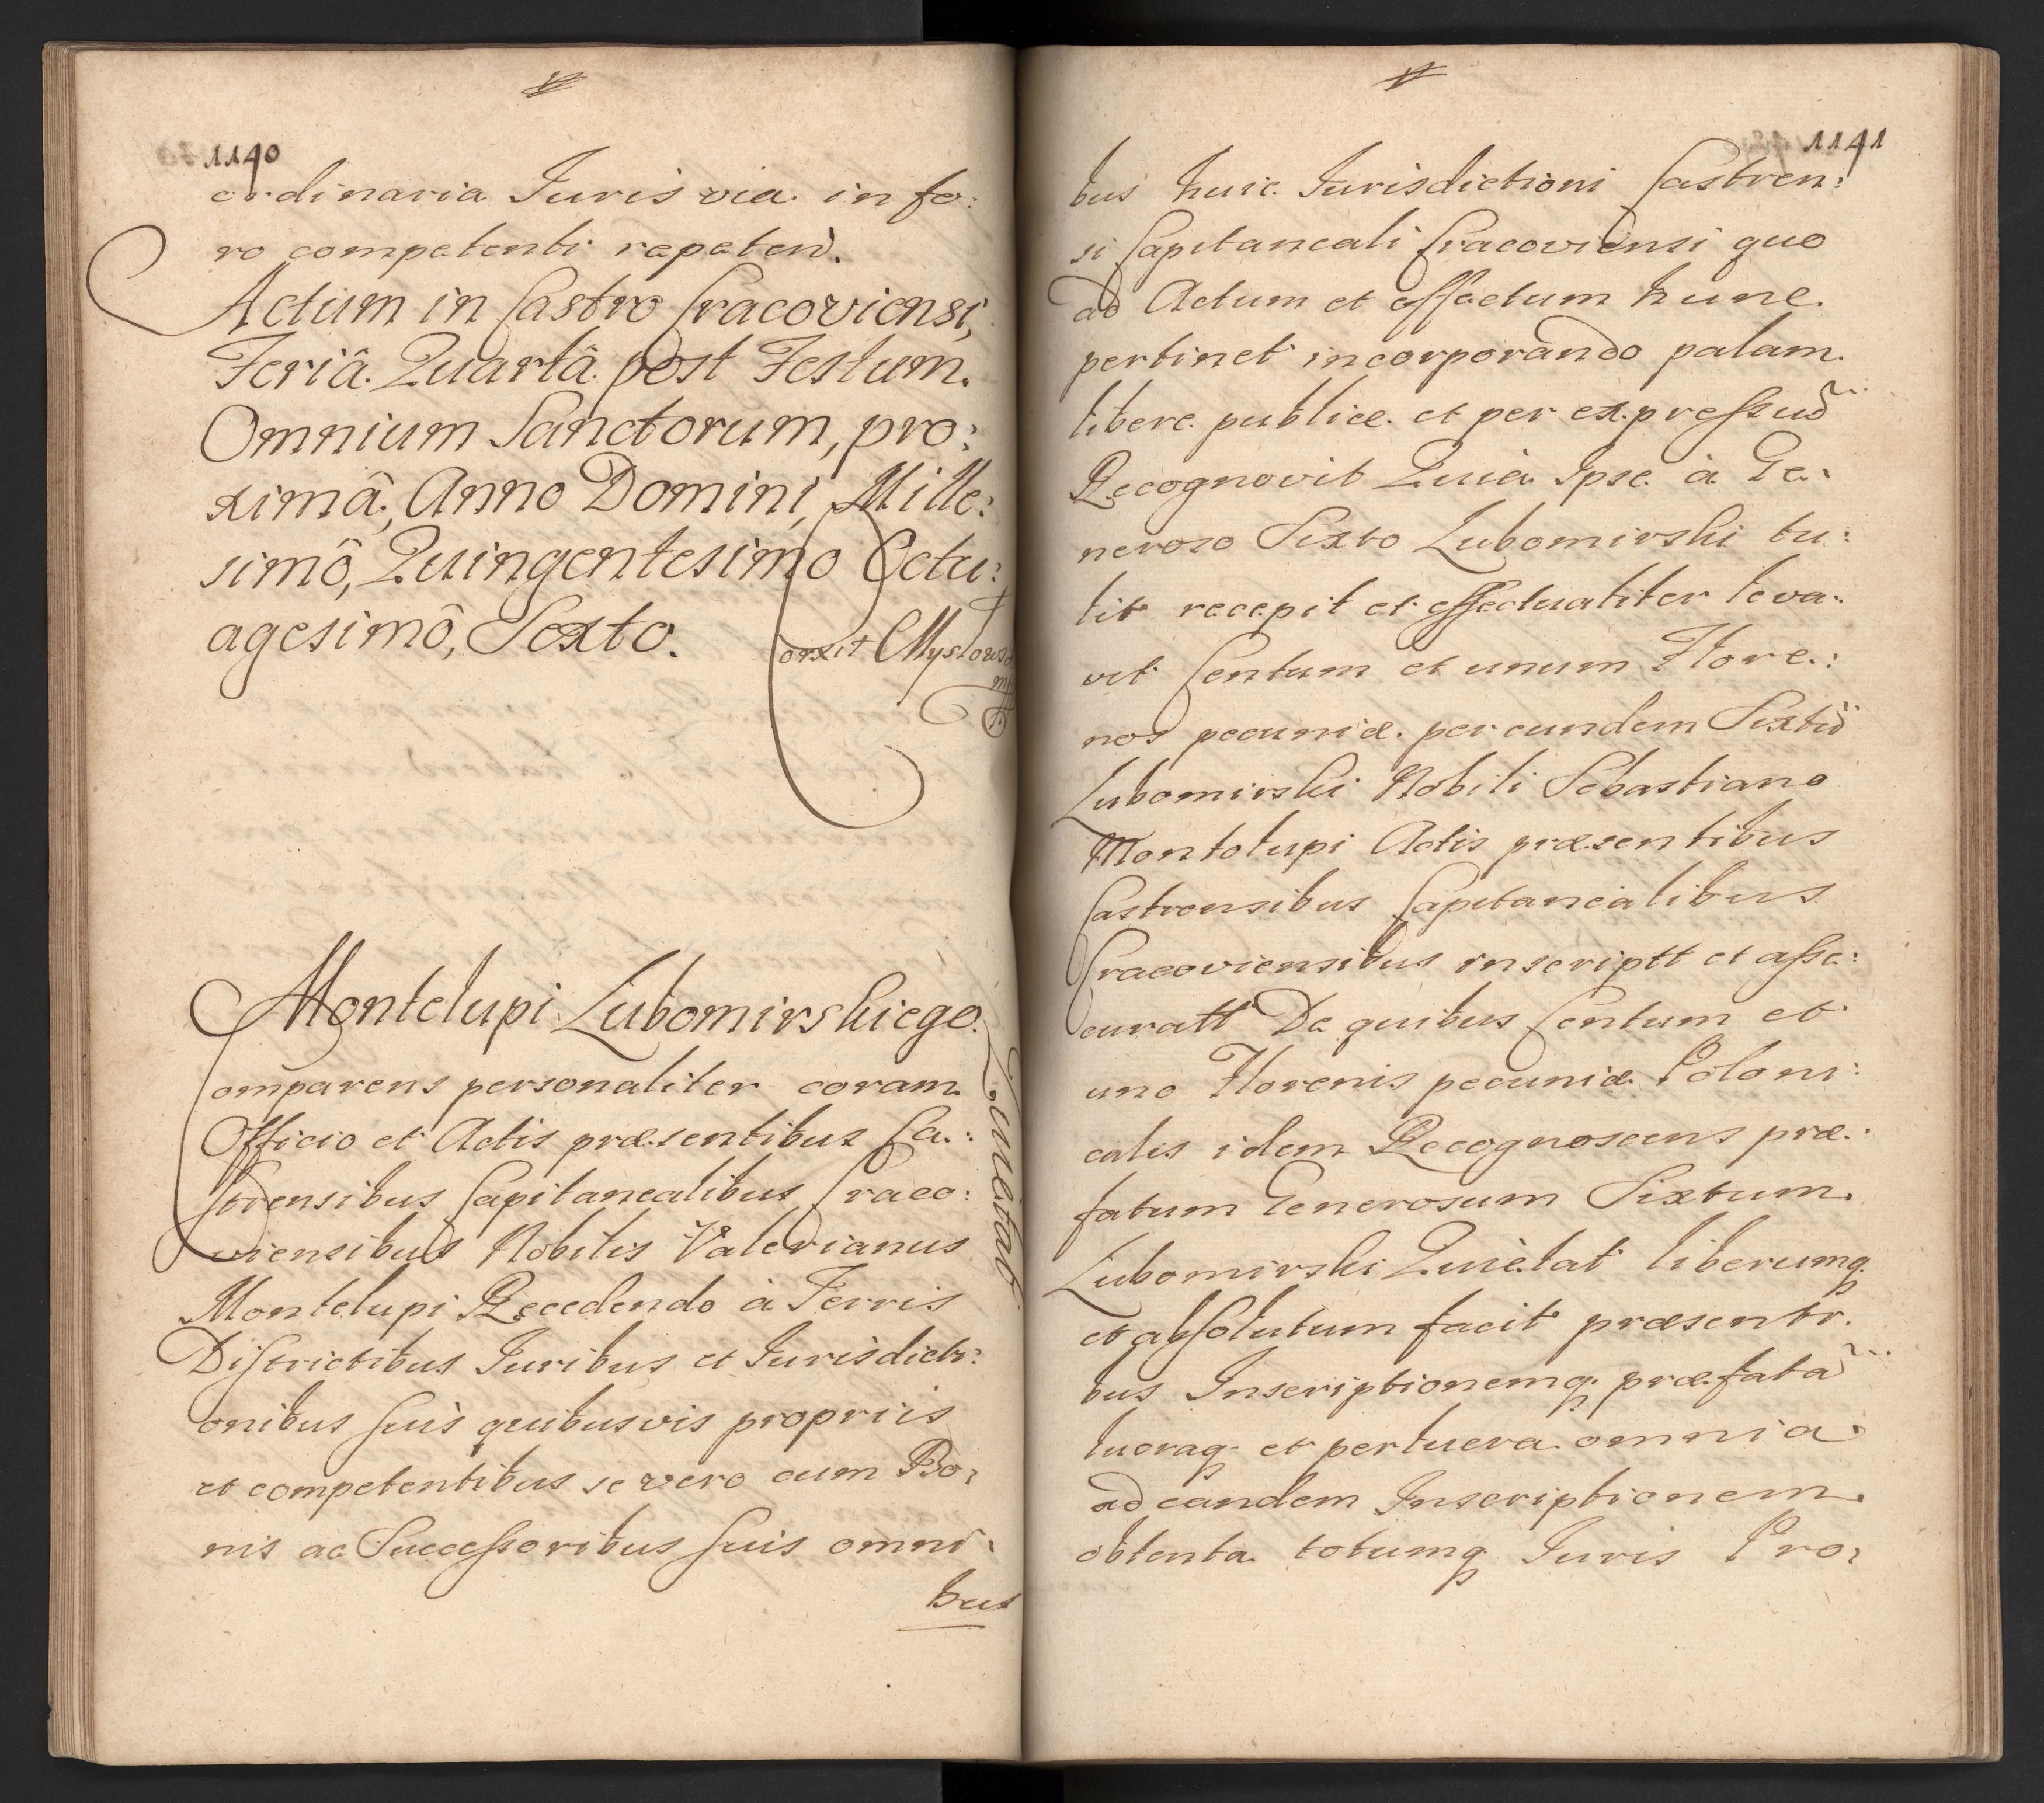 1140
ordinaria Juris via in fo:
ro competenti repetend.
Actum in Castro Cracoviensi,
Feriâ Quartâ post Festum
Omnium Sanctorum, pro:
ximâ, Anno Domini, Mille:
simô, Quingentesimo Octu:
agesimô, Sexto.
Montelupi Lubomirskiego
Quietat
Comparens personaliter coram
Officio et Actis præsentibus Ca:
strensibus Capitanealibus Craco:
viensibus Nobilis Valerianus
Montelupi Recedendo à Terris
Districtibus Juribus et Jurisdicti:
onibus suis quibusvis propriis
et competentibus se vero cum Bo:
nis ac Successoribus suis omni:
bus
1141
bus huic Jurisdictioni Castren:
si Capitaneali Cracoviensi quo
ad Actum et effectum hunc
pertinet incorporando palam
libere publice et per expressũ
Recognovit Quia Ipse à Ge:
neroso Sixto Lubomirski tu:
lit recepit et effectualiter leva:
vit Centum et unum Flore:
nos pecuniæ per eundem Sixtũ
Lubomirski Nobili Sebastiano
Montolupi Actis præsentibus
Castrensibus Capitanealibus
Cracoviensibus inscriptt et asse:
curatt De quibus Centum et
uno Florenis pecuniæ Poloni:
calis idem Recognoscens præ:
fatum Generosum Sixtum
Lubomirski Quietat liberumq
et absolutum facit præsenti:
bus Inscriptionemq præfatã
lucraq et perlucra omnia
ad eandem Inscriptionem
obtenta totumq Juris Pro: